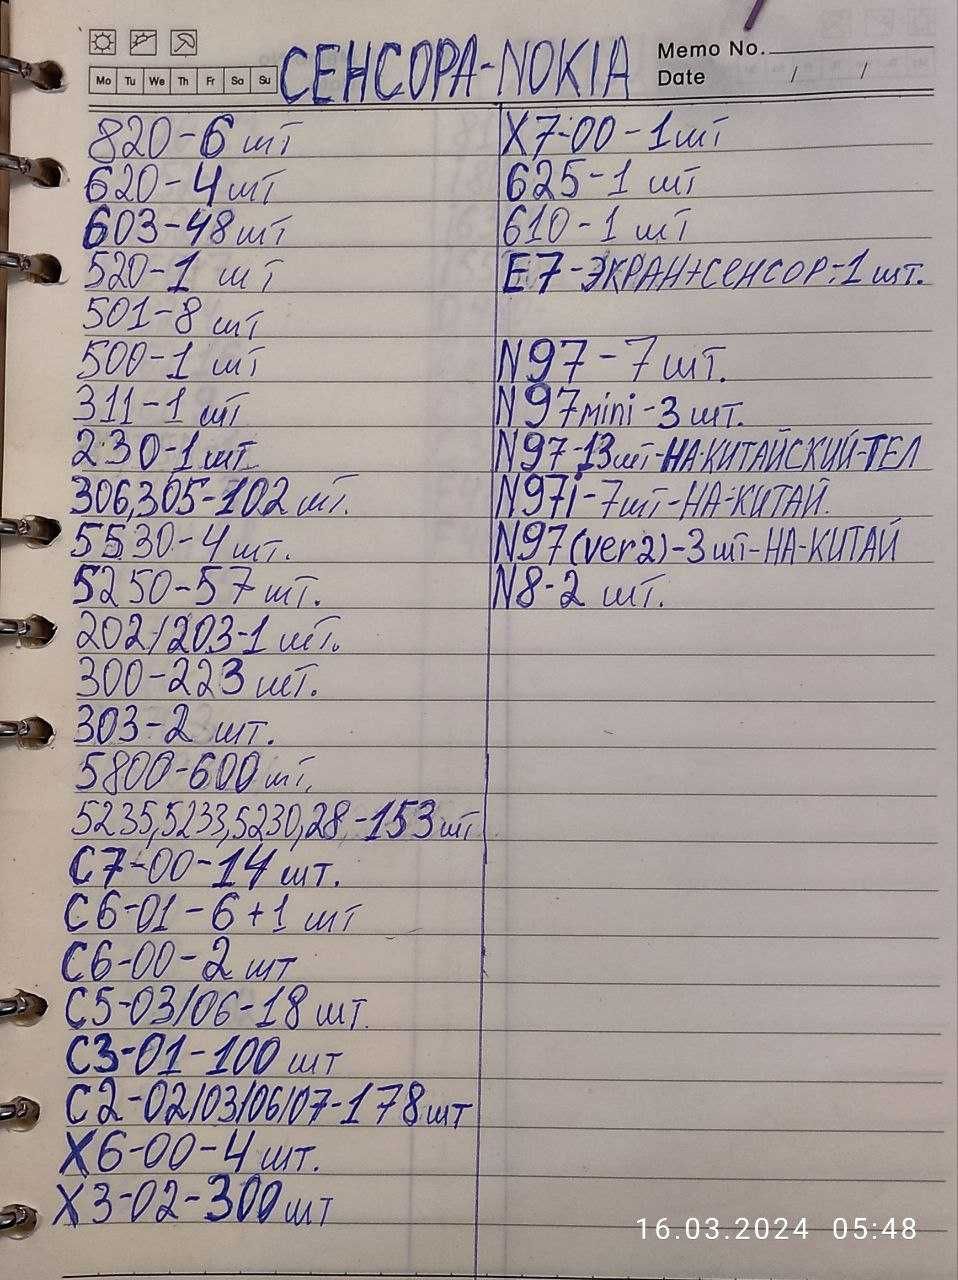 Mo Tu We Th Fr Sa Su
СЕНСОРА-NOKIA
Memo No.
Date / /
820-6 шт
620-4шт
603-48шт
520-1 шт
501-8 шт
500-1 шт
311-1 шт
230-1шт.
306,305-102 шт.
5530-4 шт.
5250-57 шт.
202/203-1 шт.
300-223 шт.
303-2 шт.
5800-600шт.
5235,5233,5230,28-153шт
C7-00-14 шт.
C6-01-6+1 шт
C6-00-2 шт
C5-03/06-18 шт.
C3-01-100 шт
C2-02/03/06/07-178шт
X6-00-4 шт.
X3-02-300шт
X7-00-1шт
625-1 шт
610-1 шт
E7-ЭКРАН+СЕНСОР-1 шт.
N97-7шт.
N97mini-3 шт.
N97-13шт-НА-КИТАЙСКИЙ-ТЕЛ
N97i-7шт-НА-КИТАЙ.
N97(ver2)-3шт-НА-КИТАЙ
N8-2 шт.
16.03.2024 05:48